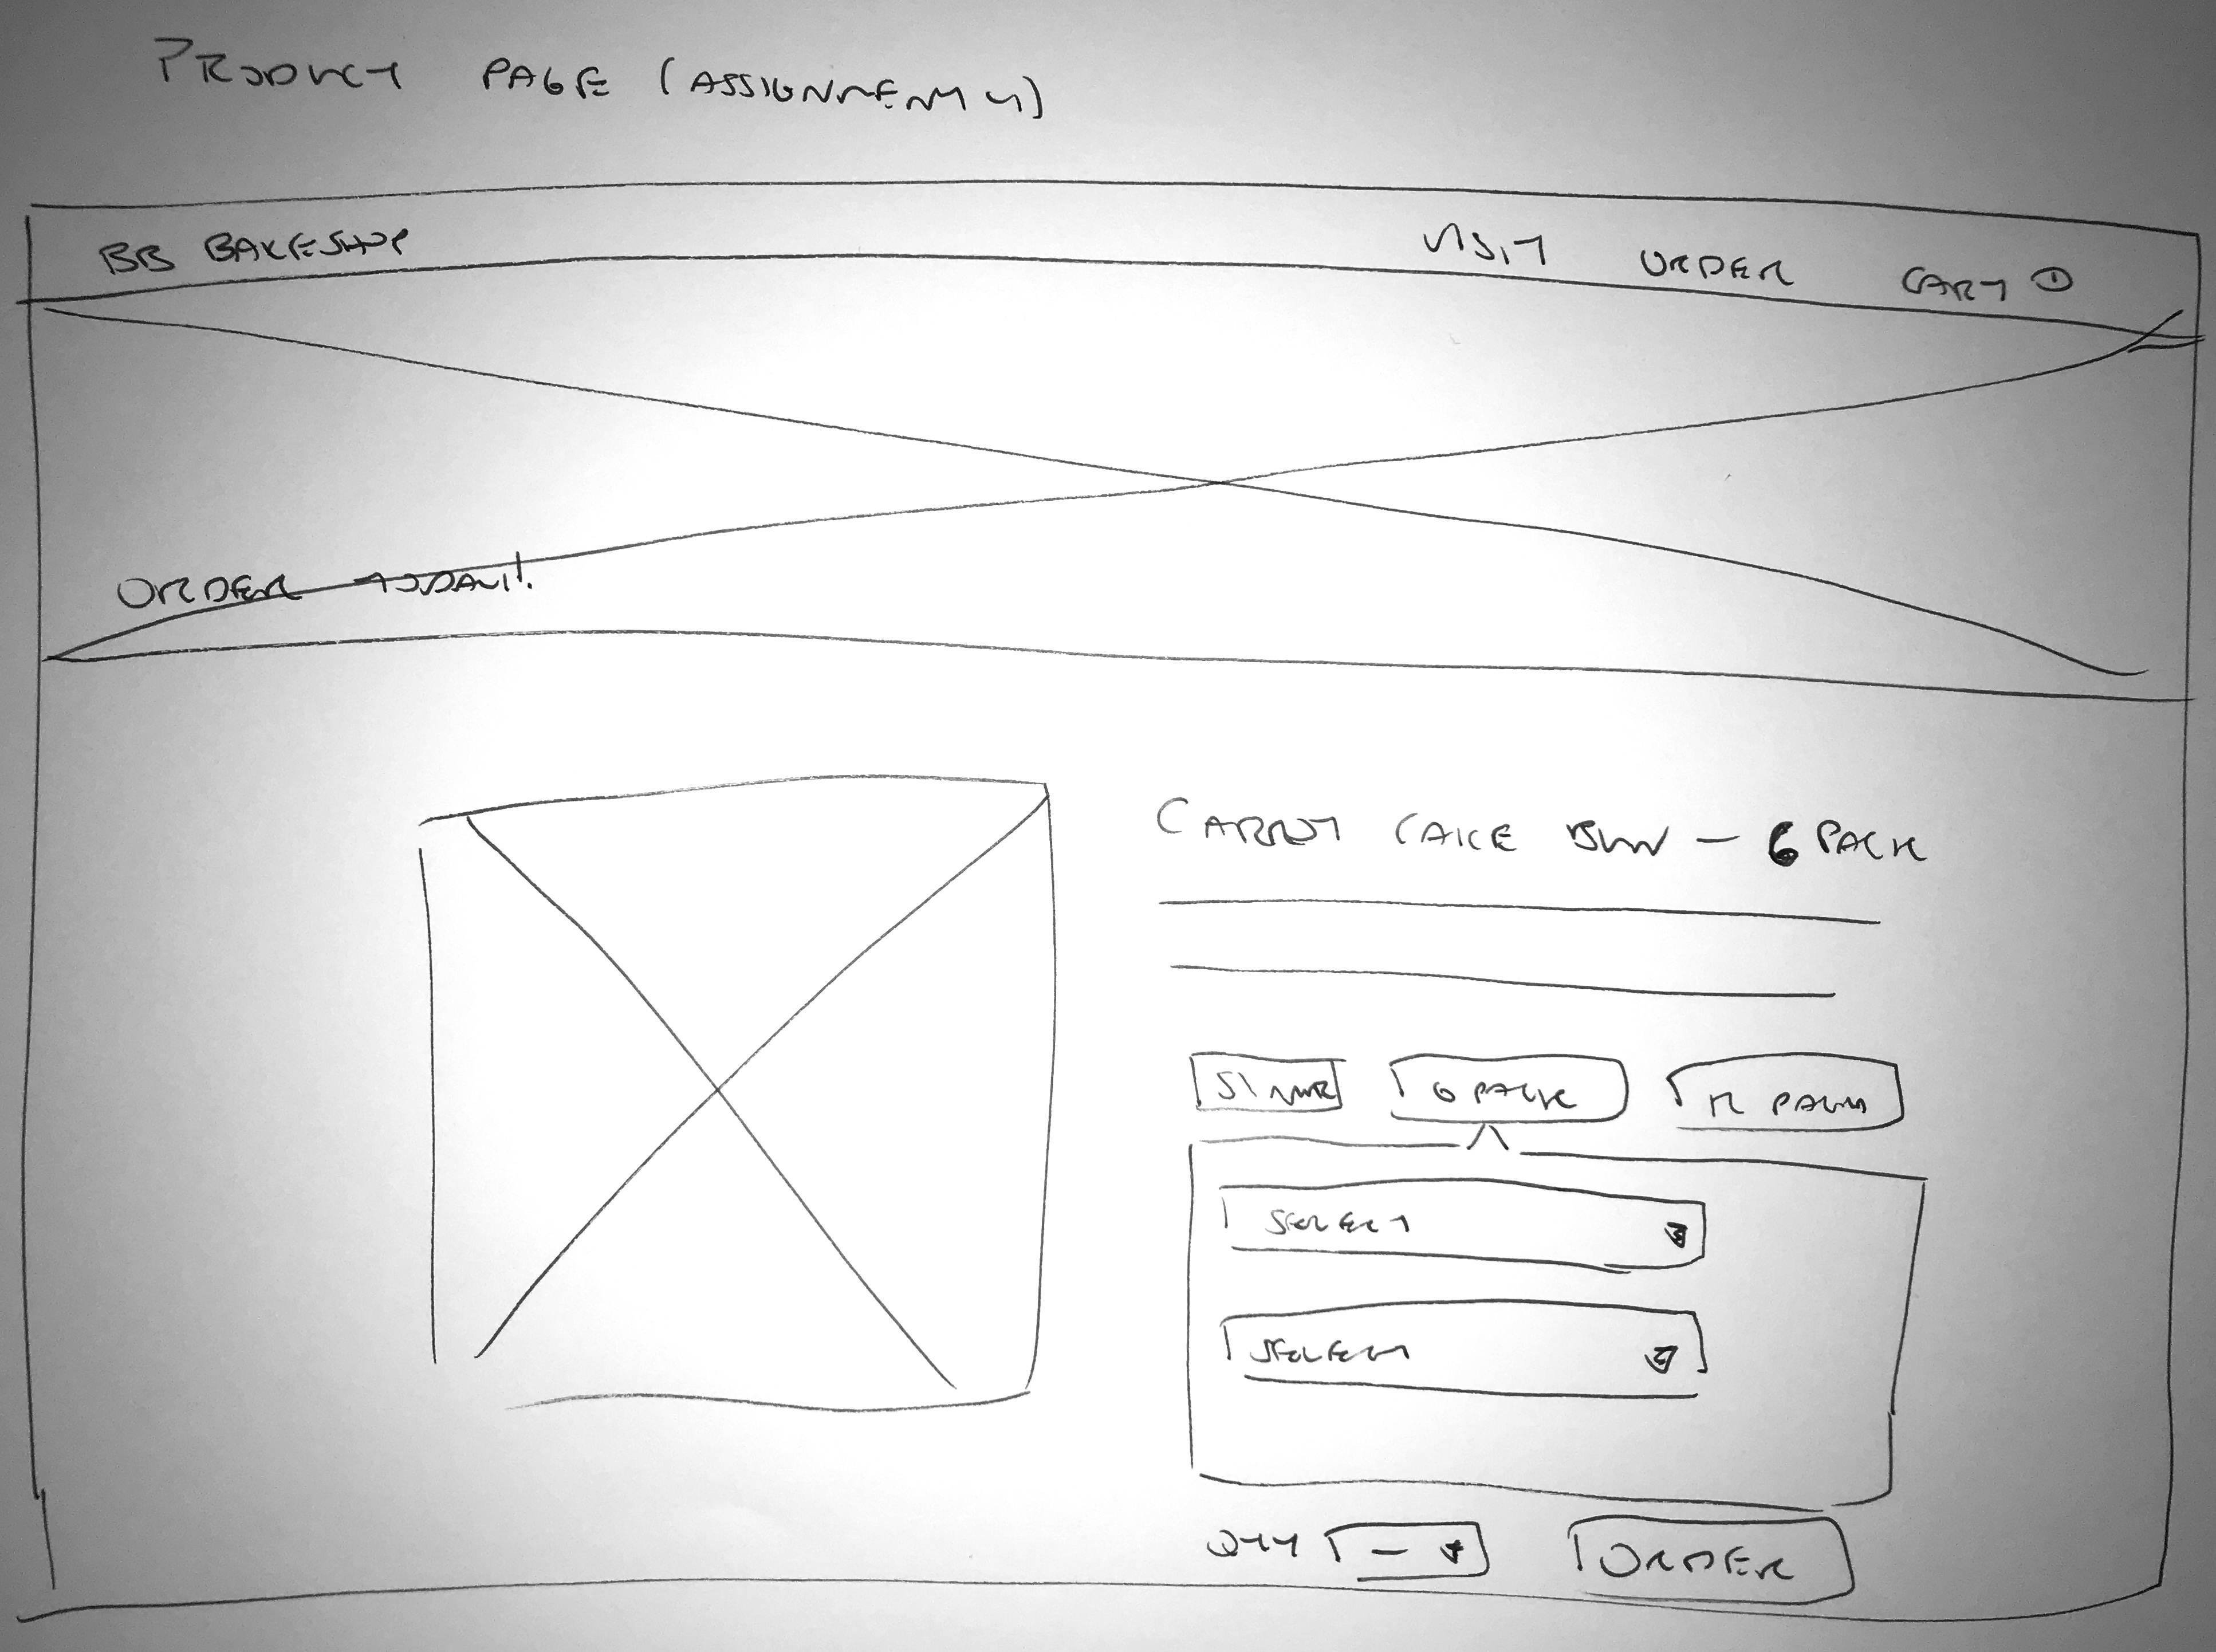 PRODUCT PAGE (ASSIGNMENT 4)
BB BAKESHOP VISIT ORDER CART 1
ORDER TODAY!
CARROT CAKE BUN - 6 PACK
SINGLE 6 PACK 12 PACK
SELECT
SELECT
QTY - ORDER